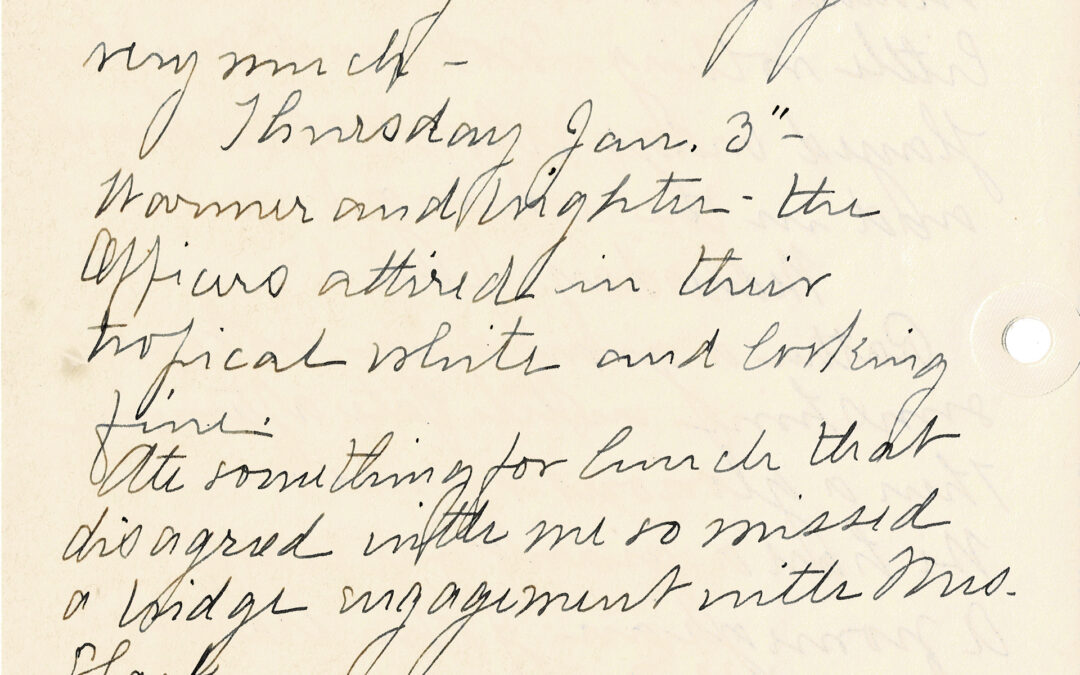 very much -
Thursday Jan. 3" -
Warmer and brighter - the
Officers attired in their
tropical white and looking
fine.
Ate something for lunch that
disagreed with me so missed
a bridge engagement with Mrs.